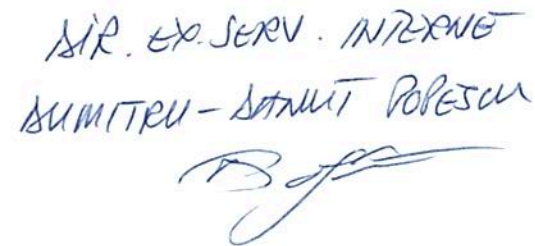 DIR. EX. SERV. INTERNE
DUMITRU-DANUT POPESCU